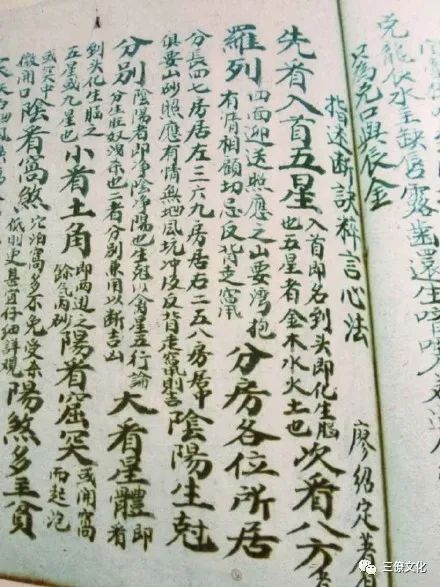 克龍似水主缺唇露齒還生
只為兌口與辰金
指迷斷訣粹言心法
廖紹定著
先看入首五星入首即名到头即化生腦也五星者金木水火土也次看八方
羅列四面迎送照應之山要灣抱有情相顧切忌反背走竄分房各位所居
分長四七房居左三六九房居右二五八房居中俱要山砂照應有情無凹風坑冲反背走竄則吉陰陽生尅
分別陰陽者即净陰净陽也生尅以禽星五行論分生旺奴洩杀也二者分別兼用以斷吉凶大看星體即看
到头化生腦之五星或九星也小看土角即兩边之餘气內砂陽者窟突或開窩而起泡
或突中微開口陰看窩煞穴泊窩多不免受杀低則更甚宜仔細詳視陽煞多主貧
三僚文化